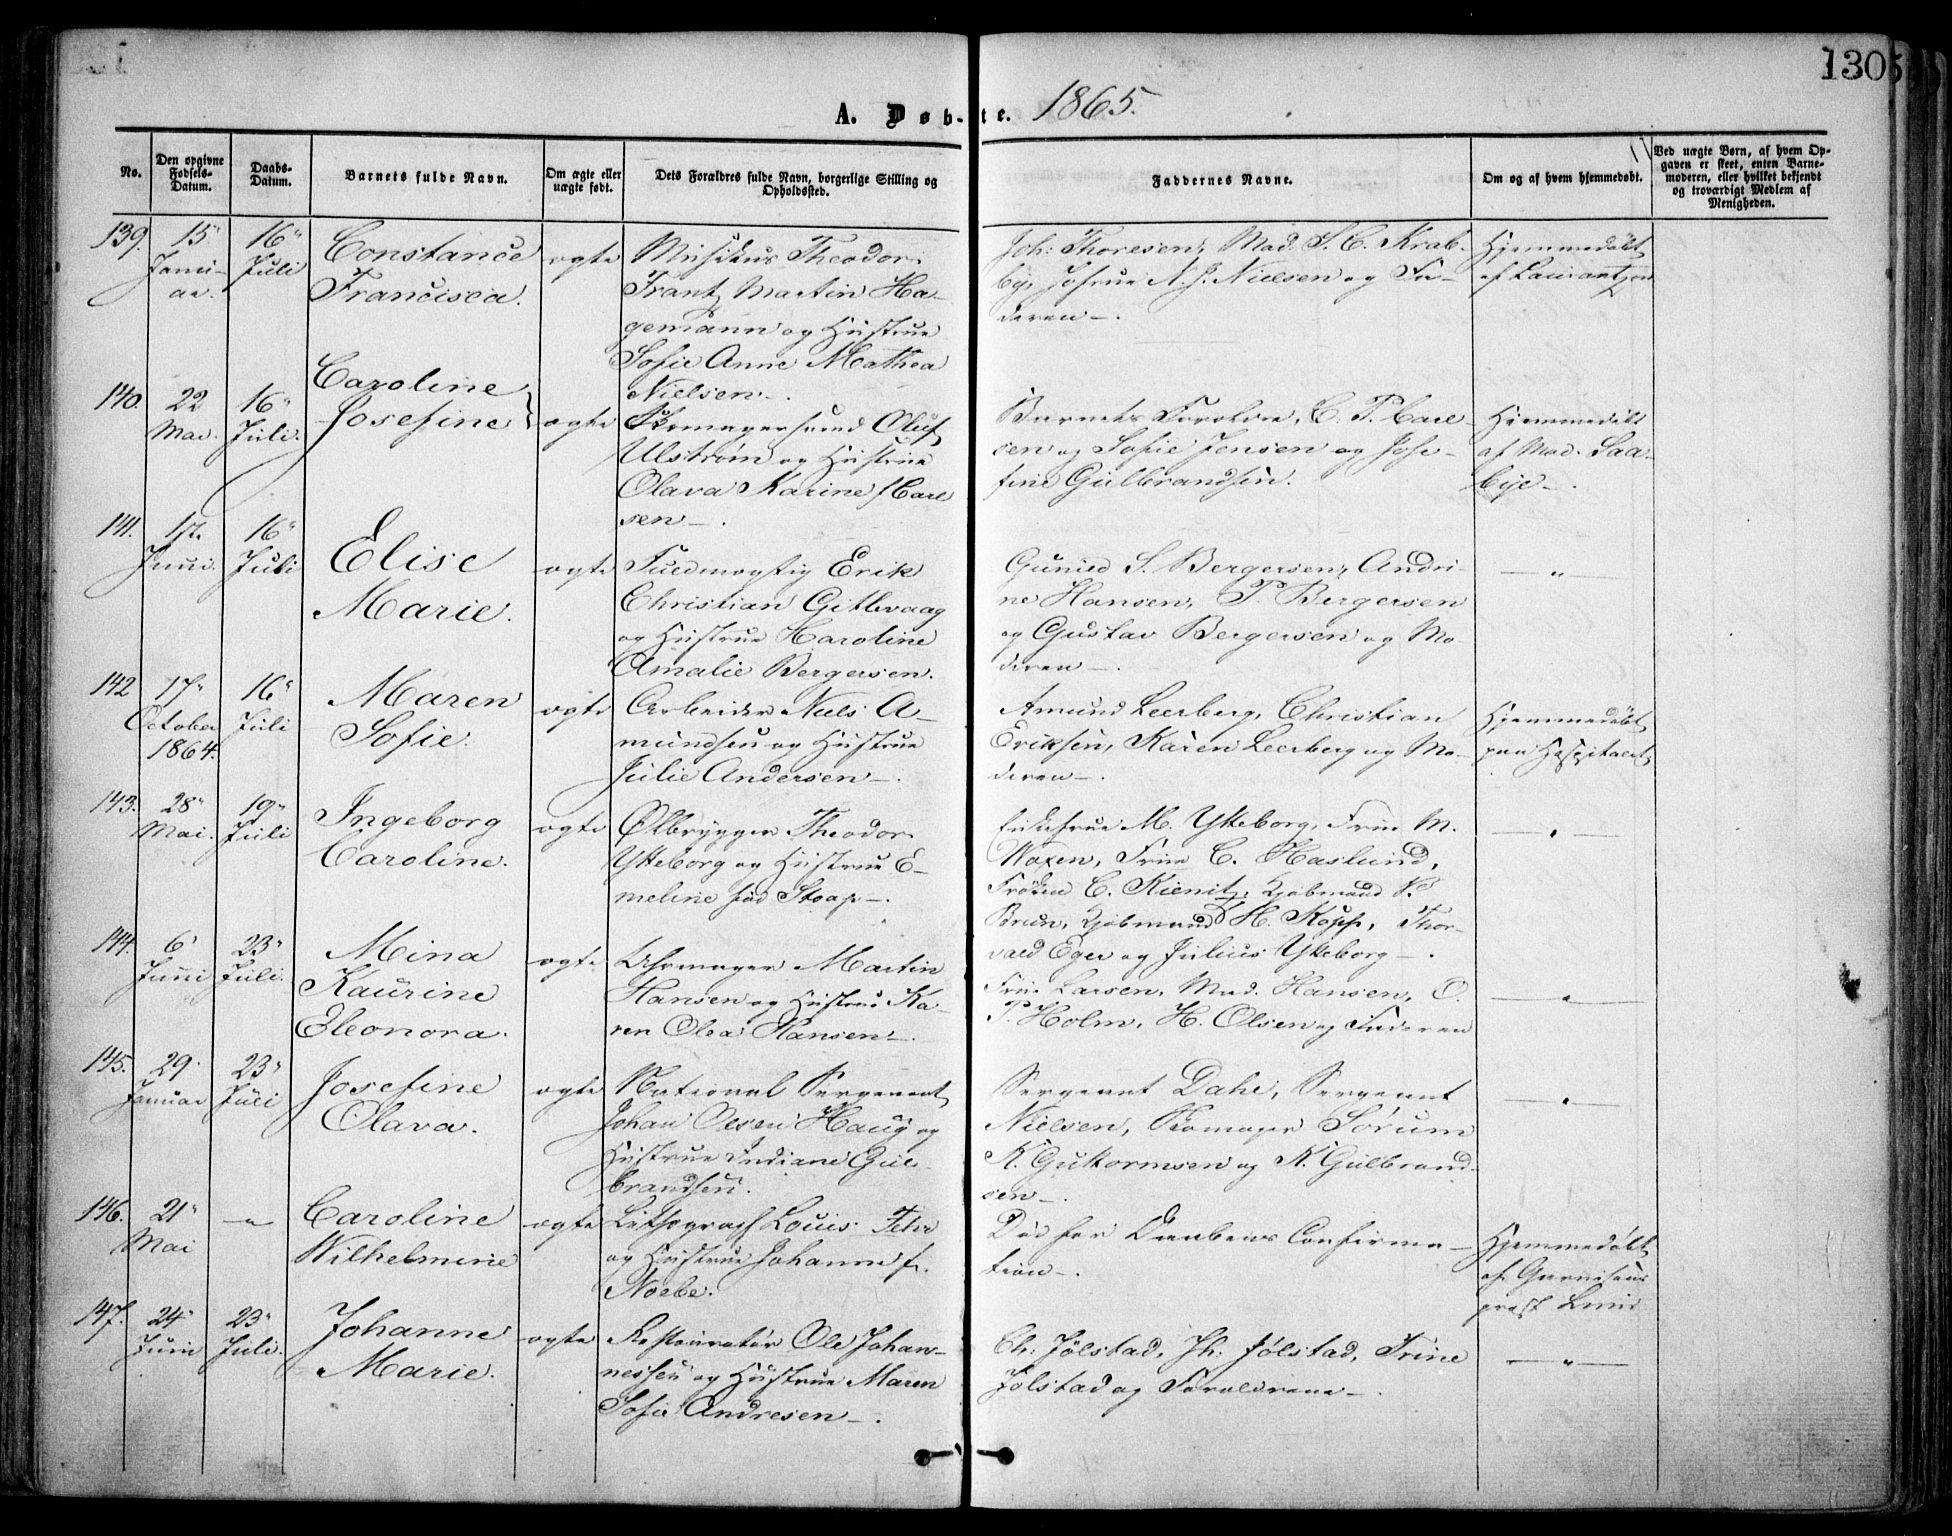 1305
A. Døb-te. 1865.
No.
Den opgivne Fødsels-Datum.
Daabs-Datum.
Barnets fulde Navn.
Om ægte eller uægte født.
Dets Forældres fulde Navn, borgerlige Stilling og Opholdssted.
Faddernes Navne.
Om og af hvem hjemmedøbt.
Ved uægte Børn, af hvem Opgaven er skeet, enten Barnemoderen, eller hvilket bekjendt og troværdigt Medlem af Menigheden.
139. 15" Januar. 16" Juli Constance Francisca. ægte
Musikus Theodor
Frantz Martin Ha-
gemann og Hustrue
Sofie Anne Mathea
Nielsen -.
Joh: Thoresen, Mad. S. C. Krab-
by, Jofrue N. J. Nielsen og Fa-
deren -.
Hjemmedøbt
af Laurantzen
140. 22 Mai. 16" Juli. Caroline Josefine ægte
Skomagersvend Oluf
Ulstrøm og Hustrue
Olava Karine Carl
sen -.
Barnets Forældre, C. P. Carl
sen og Sofie Jensen og Jose-
fine Gulbrandsen.
Hjemmedøbt
af Mad. Saa-
bye -.
141. 17. Juni. 16" Juli Elise Marie. ægte
Fuldmægtig Erik
Christian Gitlevaag
og Hustrue Karoline
Amalie Bergersen.
Gunild S. Bergersen, Andri-
ne Hansen, P. Bergersen
og Gustav Bergersen og Mo-
deren -.
— " —
142 17" October 1864. 16" Juli Maren Sofie. ægte
Arbeider Niels A-
mundsen og Hustrue
Julie Andersen -.
Amund Leerberg, Christian
Eriksen, Karen Leerberg og Mo-
deren -.
Hjemmedøbt
paa Hospitalet
143. 28" Mai. 19" Juli Ingeborg Caroline. ægte
Ølbrygger Theodor
Ytteborg og Hustrue E-
meline fød Stoap -.
Enkefrue M. Ytteborg, Frue M.
Woxen, Frue C. Haslund,
Frøken C. Kienitz, Kjøbmand
Brun, Kjøbmand H. Kopp, Thor-
vald Eger og Julius Ytteborg -.
— " —
144. 6' Juni 23" Juli. Mina Kaurine Eleonora. ægte
Uhrmager Martin
Hansen og Hustrue Ka-
ren Olea Hansen -.
Frue Larsen, Mad. Hansen, O.
P. Holm, H. Olsen og Faderen
— " —
145. 29' Januar 23" Juli Josefine Olava. ægte
National Sergeant
Johan Olsen Haug og
Hustrue Indiane Gul-
brandsen.
Sergeant Dahl, Sergeant
Nielsen, Skomager Sørum
K. Guttormsen og K. Gulbrand-
sen -.
— " —
146. 21" Mai — " Caroline Wilhelmine ægte
Lithograph Louis Fehr
og Hustrue Johanne f.
Noebe.
Død før Daabens Confirma-
tion -.
Hjemmedøbt
af Garnisons
præst Lund
147. 24" Juni 23" Juli. Johanne Marie. ægte
Restauratør Ole Johan-
nessen og Hustrue Maren
Sofie Andresen -.
Ch: Jølstad, Jh: Jølstad, Trine
Jølstad og Forældrene -.
— " —